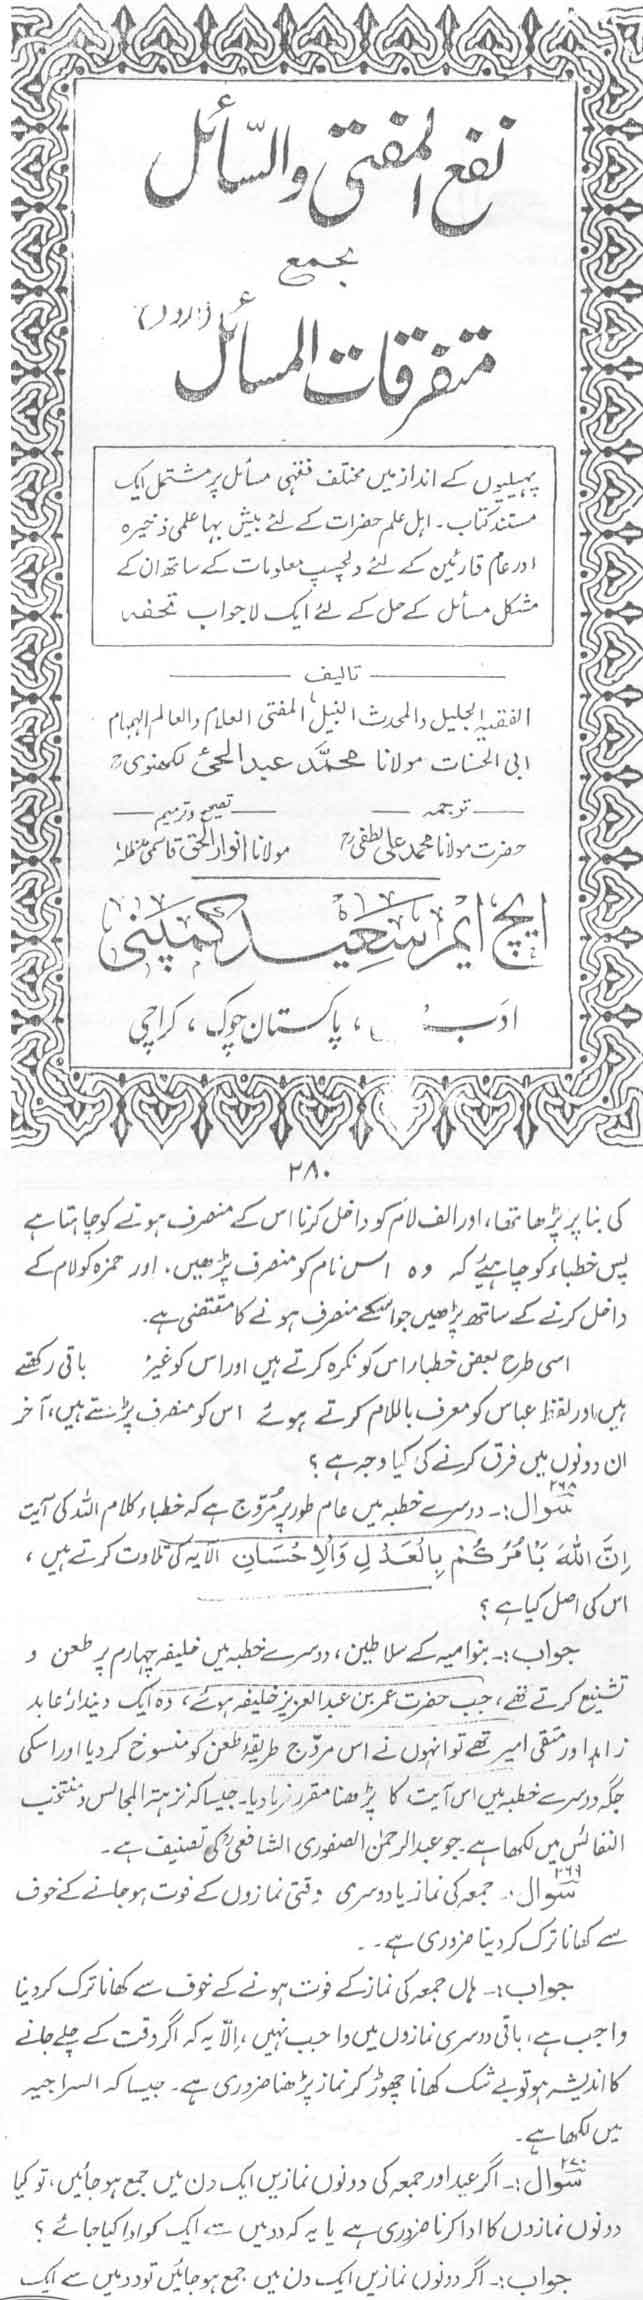 نفع المفتی والسائل
بجمع
متفرقات المسائل (اردو)
پہیلیوں کے انداز میں مختلف فقہی مسائل پر مشتمل ایک
مستند کتاب۔ اہل علم حضرات کے لئے بیش بہا علمی ذخیرہ
اور عام قارئین کے لئے دلچسپ معلومات کے ساتھ ان کے
مشکل مسائل کے حل کے لئے ایک لاجواب تحفہ
تالیف
الفقیہ الجلیل والمحدث النبیل المفتی العلام والعالم الہمام
ابی الحسنات مولانا محمد عبدالحئ لکھنویؒ
ترجمہ تصحیح و ترمیم
حضرت مولانا محمد علی لطفیؒ مولانا انوار الحق قاسمی مدظلہ
ایچ ایم سعید کمپنی
ادب ، پاکستان چوک ، کراچی
۲۸۰
کی بنا پر پڑھا تھا، اور الف لام کو داخل کرنا اس کے منصرف ہونے کو چاہتا ہے
پس خطباء کو چاہئیے کہ وہ اس نام کو منصرف پڑھیں، اور حمزہ کو لام کے
داخل کرنے کے ساتھ پڑھیں جو اسکے منصرف ہونے کا مقتضی ہے۔
اسی طرح بعض خطباء اس کو نکرہ کرتے ہیں اور اس کو غیر باقی رکھتے
ہیں اور لفظ عباس کو معرف باللام کرتے ہوئے اس کو منصرف پڑھتے ہیں، آخر
ان دونوں میں فرق کرنے کی کیا وجہ ہے ؟
سوال ۲۶۸:۔ دوسرے خطبہ میں عام طور پر مُروّج ہے کہ خطباء کلام اللہ کی آیت
اِنَّ اللهَ يَأمُرُكُمْ بِالْعَدْلِ وَالْاِحْسَانِ الآیہ کی تلاوت کرتے ہیں ،
اس کی اصل کیا ہے ؟
جواب :۔ بنوامیہ کے سلاطین، دوسرے خطبہ میں خلیفہ چہارم پر طعن و
تشنیع کرتے تھے، جب حضرت عمر بن عبدالعزیز خلیفہ ہوئے، وہ ایک دیندار عابد
زاہد اور متقی امیر تھے تو انہوں نے اس مروّج طریقۂ طعن کو منسوخ کر دیا اور اسکی
جگہ دوسرے خطبہ میں اس آیت کا پڑھنا مقرر فرما دیا۔ جیسا کہ نزہتہ المجالس و منتخب
النفائس میں لکھا ہے۔ جو عبدالرحمٰن الصفوری الشافعیؒ کی تصنیف ہے۔
سوال ۲۶۹:۔ جمعہ کی نماز یا دوسری وقتی نمازوں کے فوت ہو جانے کے خوف
سے کھانا ترک کر دینا ضروری ہے۔۔
جواب :۔ ہاں جمعہ کی نماز کے فوت ہونے کے خوف سے کھانا ترک کر دینا
واجب ہے، باقی دوسری نمازوں میں واجب نہیں، اِلّا یہ کہ اگر وقت کے چلے جانے
کا اندیشہ ہو تو بے شک کھانا چھوڑ کر نماز پڑھنا ضروری ہے۔ جیسا کہ السراجیہ
میں لکھا ہے۔
سوال ۲۷۰:۔ اگر عید اور جمعہ کی دونوں نمازیں ایک دن میں جمع ہو جائیں، تو کیا
دونوں نمازوں کا ادا کرنا ضروری ہے یا یہ کہ دو میں سے ایک کو ادا کیا جائے ؟
جواب :۔ اگر دونوں نمازیں ایک دن میں جمع ہو جائیں تو دو میں سے ایک